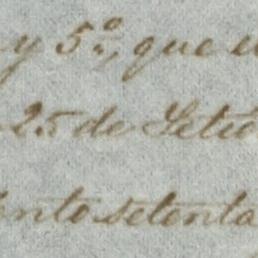 y 5º, que e
25 de Setie
ento setenta